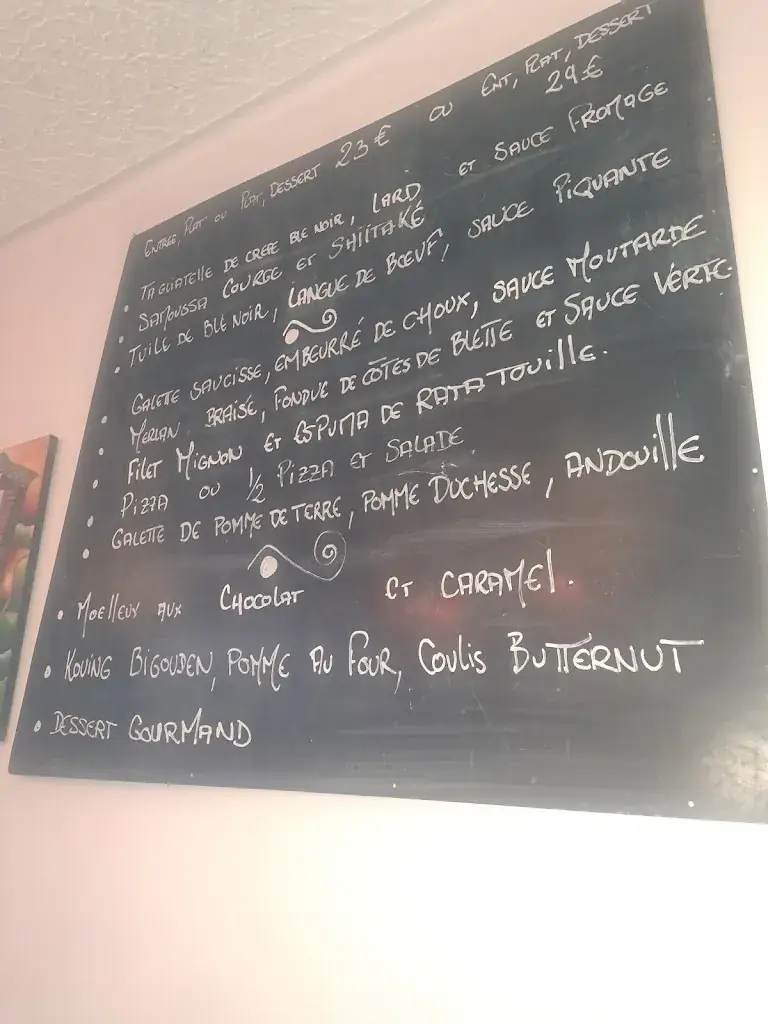 ENTRÉE, PLAT OU PLAT, DESSERT 23€ OU ENT, PLAT, DESSERT 29€
• TAGLIATELLE DE CRÊPE BLÉ NOIR, LARD ET SAUCE FROMAGE
• SAMOUSSA COURGE ET SHIITAKÉ
• TUILE DE BLÉ NOIR, LANGUE DE BŒUF, SAUCE PIQUANTE
• GALETTE SAUCISSE, EMBEURRÉ DE CHOUX, SAUCE MOUTARDE
• MERLAN BRAISÉ, FONDUE DE CÔTES DE BLETTE ET SAUCE VERTE.
• FILET MIGNON ET ESPUMA DE RATATOUILLE.
• PIZZA OU 1/2 PIZZA ET SALADE
• GALETTE DE POMME DE TERRE, POMME DUCHESSE, ANDOUILLE
• MOELLEUX AUX CHOCOLAT ET CARAMEL.
• KOUING BIGOUDEN, POMME AU FOUR, COULIS BUTTERNUT
• DESSERT GOURMAND